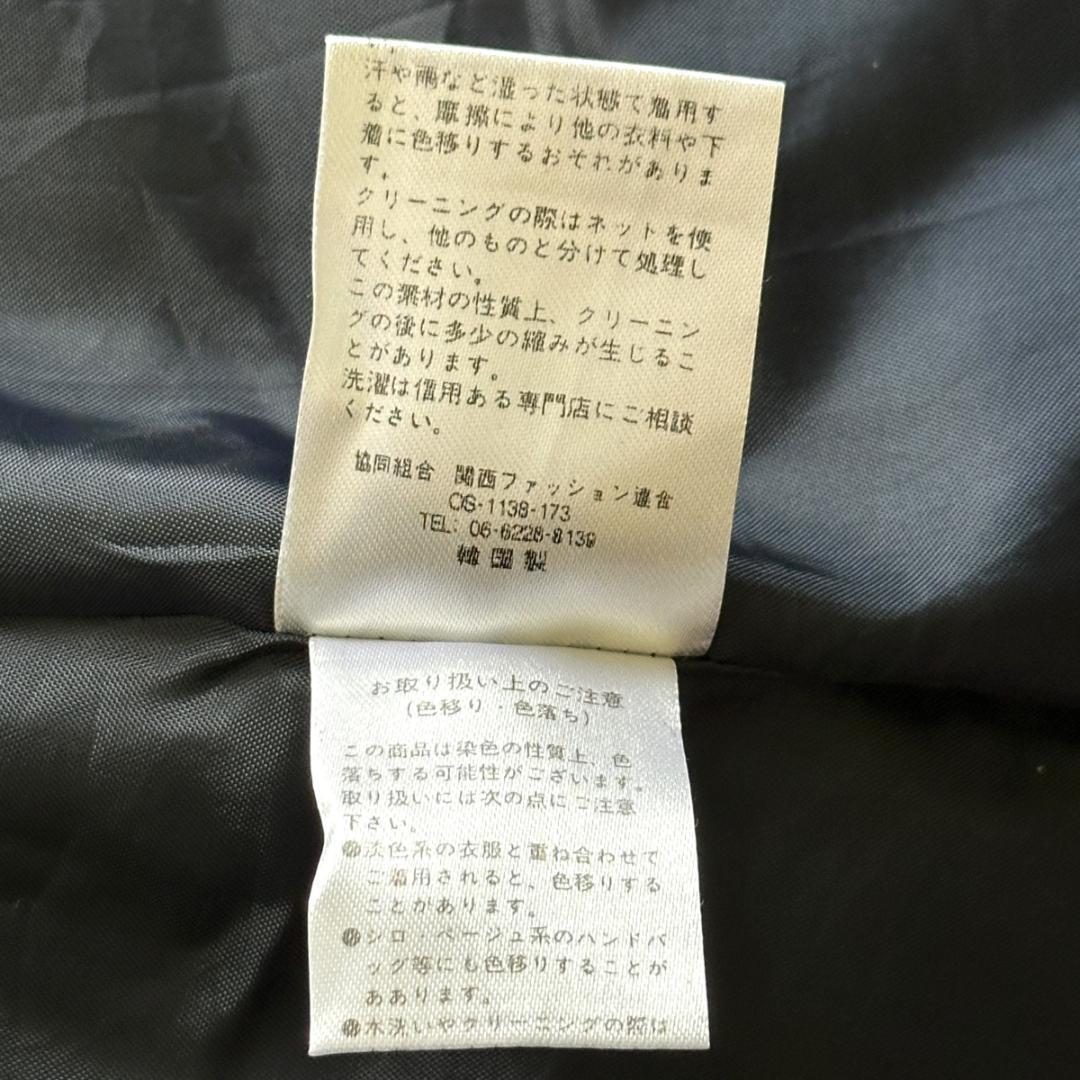 汗や雨など湿った状態て着用す
ると、摩擦により他の衣料や下
着に色移りするおそれがありま
す。
クリーニングの際はネットを使
用し、他のものと分けて処理し
てください。
この素材の性質上、クリーニン
グの後に多少の縮みが生じるこ
とがあります。
洗濯は信用ある専門店にご相談
ください。
協同組合 関西ファッション連合
OS-1138-173
TEL: 06-6228-8139
韓国製
お取り扱い上のご注意
(色移り・色落ち)
この商品は染色の性質上、色
落ちする可能性がございます。
取り扱いには次の点にご注意
下さい。
●淡色系の衣服と重ね合わせて
ご着用されると、色移りする
ことがあります。
●シロ・ベージュ系のハンドバ
ッグ等にも色移りすることが
ああります。
●水洗いやクリーニングの際は